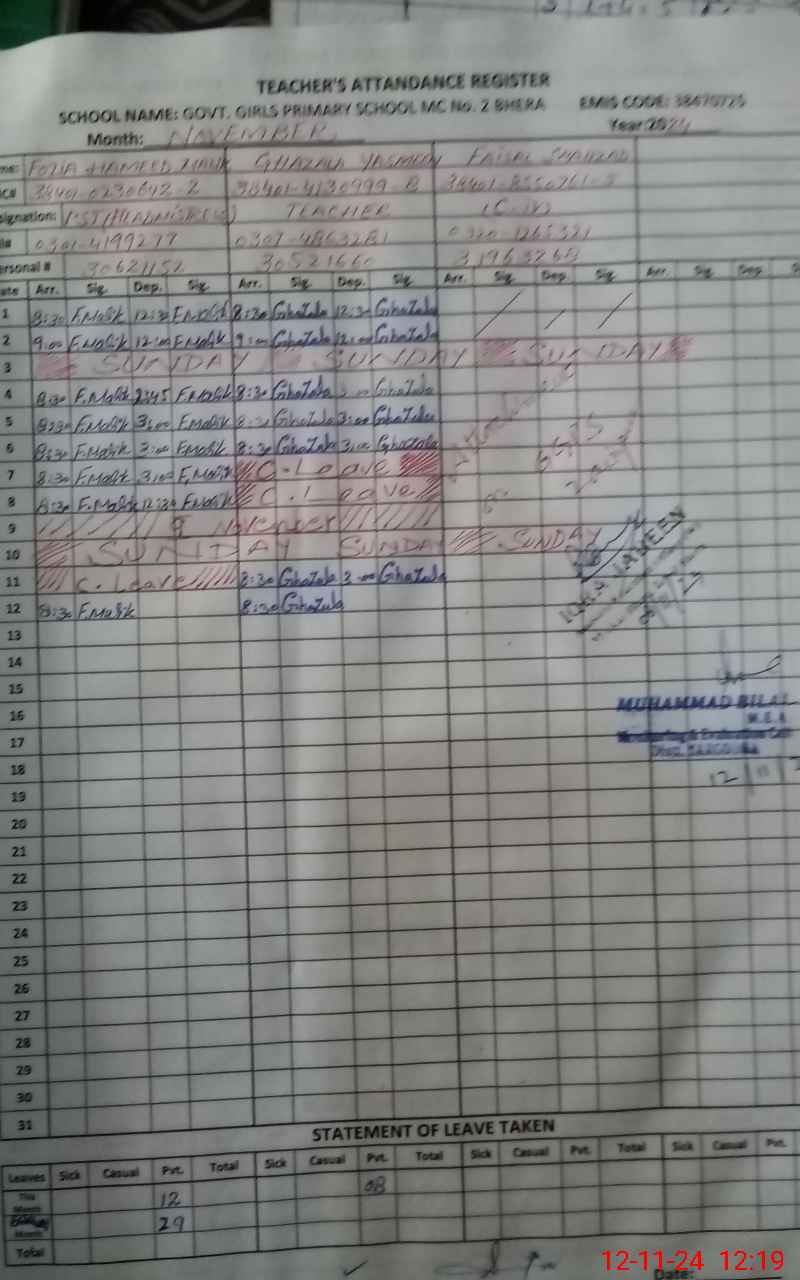 TEACHER'S ATTANDANCE REGISTER
SCHOOL NAME: GOVT. GIRLS PRIMARY SCHOOL MC No. 2 BHERA EMIS CODE: 38470725
Month: NAVEMBER Year:2024
FOZIA HAMEED MALIK GHAZALA YASMEEN FAISAL SHAHZAD
38401-0230642-2 38401-4130999-8
signation: TEACHER
0301-4199277 0307-4863281 0320-1265321
ersonal # 30621152 30521660 31963268
ate Arr. Sig. Dep. Sig. Arr. Sig. Dep. Sig. Arr. Sig. Dep. Sig. Arr. Sig. Dep. S
1 8:30 F.Malik 12:30 F.Malik 8:30 Ghazala 12:30 Ghazala
2 9:00 F.Malik 12:00 F.Malik 9:00 Ghazala 12:00 Ghazala
3 SUNDAY SUNDAY SUNDAY
4 8:30 F.Malik 2:45 F.Malik 8:30 Ghazala 3:00 Ghazala
5 8:30 F.Malik 3:00 F.Malik 8:30 Ghazala 3:00 Ghazala
6 8:30 F.Malik 3:00 F.Malik 8:30 Ghazala 3:00 Ghazala
7 8:30 F.Malik 3:00 F.Malik C.Leave
8 8:30 F.Malik 12:30 F.Malik C.Leave
9 9 November
10 SUNDAY SUNDAY SUNDAY
11 C.Leave 8:30 Ghazala 3:00 Ghazala
12 8:30 F.Malik 8:30 Ghazala
13
14
15
MUHAMMAD BILAL
16
M.E.A
17 Monitoring & Evaluation Cell
Distt. SARGODHA
18
12/11/2
19
20
21
22
23
24
25
26
27
28
29
30
31
STATEMENT OF LEAVE TAKEN
Leaves Sick Casual Pvt. Total Sick Casual Pvt. Total Sick Casual Pvt. Total Sick Casual Pvt.
This Month 12 08
Month 29
Total
12-11-24 12:19
Date: